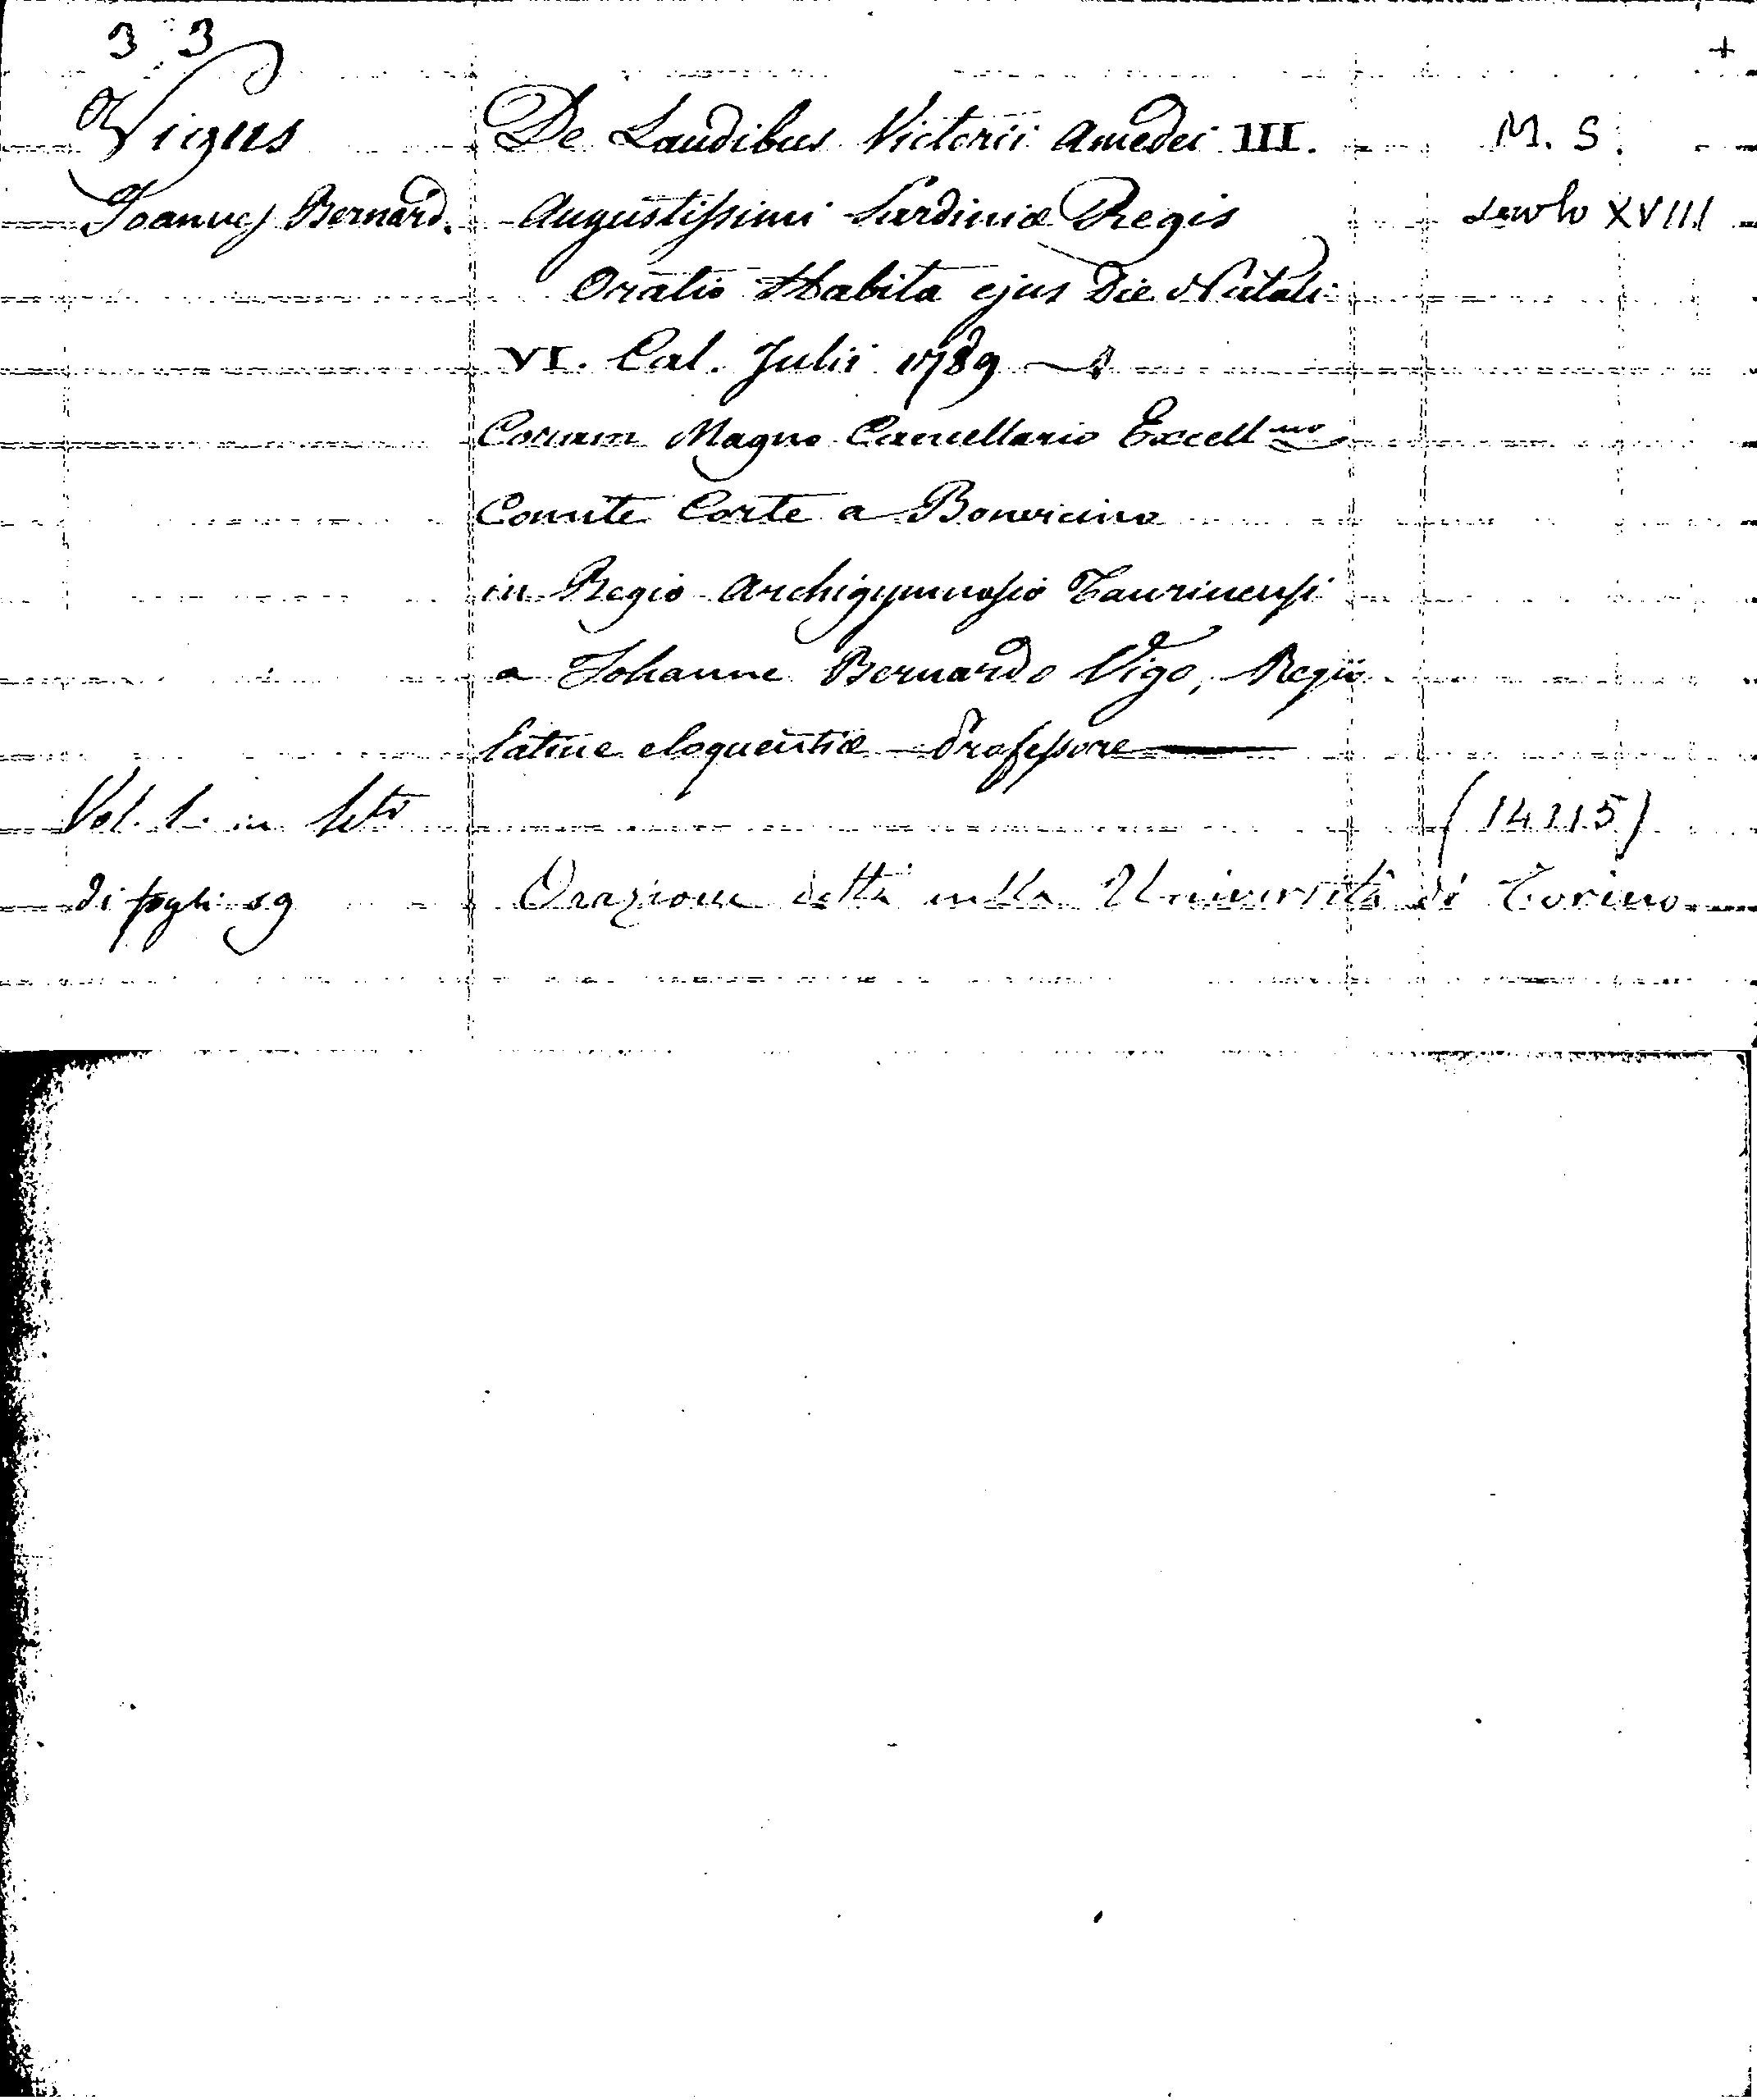 3 3 +
Vigus De Laudibus Victorii Amedei III. M. S.
Joannes Bernard. Augustissimi Sardiniæ Regis Secolo XVIII
Oratio Habita ejus Die Natali
VI. Cal. Julii 1789
Coram Magno Cancellario Excell mo
Comite Corte a Bonvicino
in Regio Archigymnasio Taurinensi
a Johanne Bernardo Vigo, Regio
latinæ eloquentiæ Professore
Vol. 1. in (14115)
di fogli 19 Orazione detta nella Università di Torino